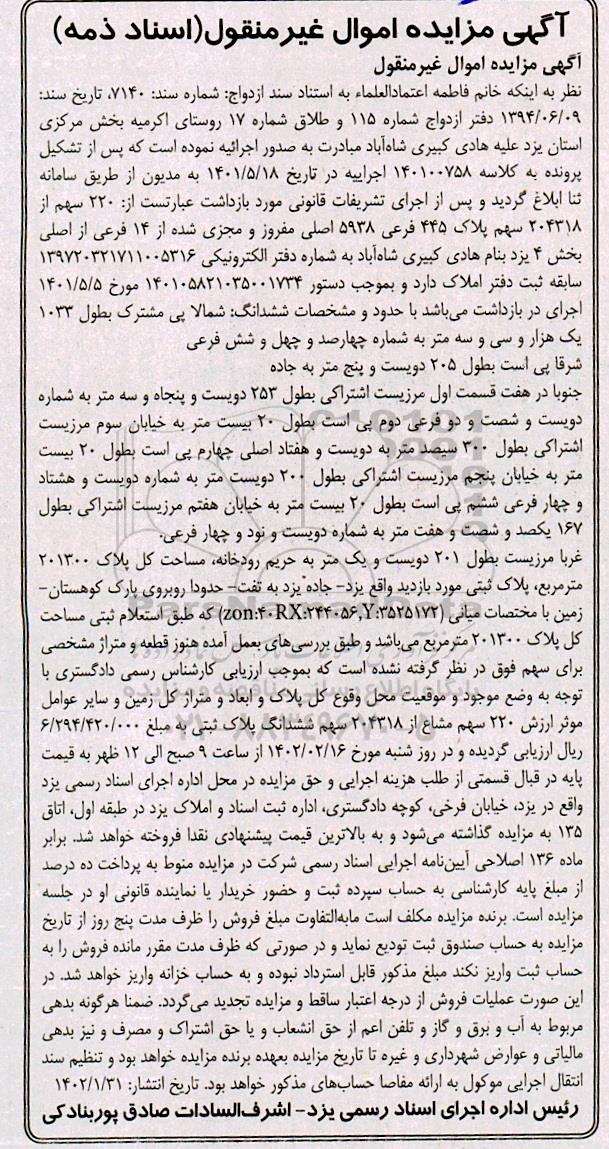 آگهی مزایده اموال غیرمنقول(اسناد ذمه)
آگهی مزایده اموال غیرمنقول
نظر به اینکه خانم فاطمه اعتمادالعلماء به استناد سند ازدواج: شماره سند: ۷۱۴۰، تاریخ سند:
۱۳۹۴/۰۶/۰۹ دفتر ازدواج شماره ۱۱۵ و طلاق شماره ۱۷ روستای اکرمیه بخش مرکزی
استان یزد علیه هادی کبیری شاه‌آباد مبادرت به صدور اجرائیه نموده است که پس از تشکیل
پرونده به کلاسه ۱۴۰۱۰۰۷۵۸ اجراییه در تاریخ ۱۴۰۱/۵/۱۸ به مدیون از طریق سامانه
ثنا ابلاغ گردید و پس از اجرای تشریفات قانونی مورد بازداشت عبارتست از: ۲۲۰ سهم از
۲۰۴۳۱۸ سهم پلاک ۴۴۵ فرعی ۵۹۳۸ اصلی مفروز و مجزی شده از ۱۴ فرعی از اصلی
بخش ۴ یزد بنام هادی کبیری شاه‌آباد به شماره دفتر الکترونیکی ۱۳۹۷۲۰۳۲۱۷۱۱۰۰۵۳۱۶
سابقه ثبت دفتر املاک دارد و بموجب دستور ۱۴۰۱۰۵۸۲۱۰۳۵۰۰۱۷۳۴ مورخ ۱۴۰۱/۵/۵
اجرای در بازداشت می‌باشد با حدود و مشخصات ششدانگ: شمالا پی مشترک بطول ۱۰۳۳
یک هزار و سی و سه متر به شماره چهارصد و چهل و شش فرعی
شرقا پی است بطول ۲۰۵ دویست و پنج متر به جاده
جنوبا در هفت قسمت اول مرزیست اشتراکی بطول ۲۵۳ دویست و پنجاه و سه متر به شماره
دویست و شصت و دو فرعی دوم پی است بطول ۲۰ بیست متر به خیابان سوم مرزیست
اشتراکی بطول ۳۰۰ سیصد متر به دویست و هفتاد اصلی چهارم پی است بطول ۲۰ بیست
متر به خیابان پنجم مرزیست اشتراکی بطول ۲۰۰ دویست متر به شماره دویست و هشتاد
و چهار فرعی ششم پی است بطول ۲۰ بیست متر به خیابان هفتم مرزیست اشتراکی بطول
۱۶۷ یکصد و شصت و هفت متر به شماره دویست و نود و چهار فرعی.
غربا مرزیست بطول ۲۰۱ دویست و یک متر به حریم رودخانه، مساحت کل پلاک ۲۰۱۳۰۰
مترمربع، پلاک ثبتی مورد بازدید واقع یزد- جاده یزد به تفت- حدودا روبروی پارک کوهستان-
زمین با مختصات میانی (zon:۴۰RX:۲۴۴۰۵۶,Y:۳۵۲۵۱۷۲) که طبق استعلام ثبتی مساحت
کل پلاک ۲۰۱۳۰۰ مترمربع می‌باشد و طبق بررسی‌های بعمل آمده هنوز قطعه و متراژ مشخصی
برای سهم فوق در نظر گرفته نشده است که بموجب ارزیابی کارشناس رسمی دادگستری با
توجه به وضع موجود و موقعیت محل وقوع کل پلاک و ابعاد و متراژ کل زمین و سایر عوامل
موثر ارزش ۲۲۰ سهم مشاع از ۲۰۴۳۱۸ سهم ششدانگ پلاک ثبتی به مبلغ ۶/۲۹۴/۴۲۰/۰۰۰
ریال ارزیابی گردیده و در روز شنبه مورخ ۱۴۰۲/۰۲/۱۶ از ساعت ۹ صبح الی ۱۲ ظهر به قیمت
پایه در قبال قسمتی از طلب هزینه اجرایی و حق مزایده در محل اداره اجرای اسناد رسمی یزد
واقع در یزد، خیابان فرخی، کوچه دادگستری، اداره ثبت اسناد و املاک یزد در طبقه اول، اتاق
۱۳۵ به مزایده گذاشته می‌شود و به بالاترین قیمت پیشنهادی نقدا فروخته خواهد شد. برابر
ماده ۱۳۶ اصلاحی آیین‌نامه اجرایی اسناد رسمی شرکت در مزایده منوط به پرداخت ده درصد
از مبلغ پایه کارشناسی به حساب سپرده ثبت و حضور خریدار یا نماینده قانونی او در جلسه
مزایده است. برنده مزایده مکلف است مابه‌التفاوت مبلغ فروش را ظرف مدت پنج روز از تاریخ
مزایده به حساب صندوق ثبت تودیع نماید و در صورتی که ظرف مدت مقرر مانده فروش را به
حساب ثبت واریز نکند مبلغ مذکور قابل استرداد نبوده و به حساب خزانه واریز خواهد شد. در
این صورت عملیات فروش از درجه اعتبار ساقط و مزایده تجدید می‌گردد. ضمنا هرگونه بدهی
مربوط به آب و برق و گاز و تلفن اعم از حق انشعاب و یا حق اشتراک و مصرف و نیز بدهی
مالیاتی و عوارض شهرداری و غیره تا تاریخ مزایده بعهده برنده مزایده خواهد بود و تنظیم سند
انتقال اجرایی موکول به ارائه مفاصا حساب‌های مذکور خواهد بود. تاریخ انتشار: ۱۴۰۲/۱/۳۱
رئیس اداره اجرای اسناد رسمی یزد- اشرف‌السادات صادق پوربنادکی